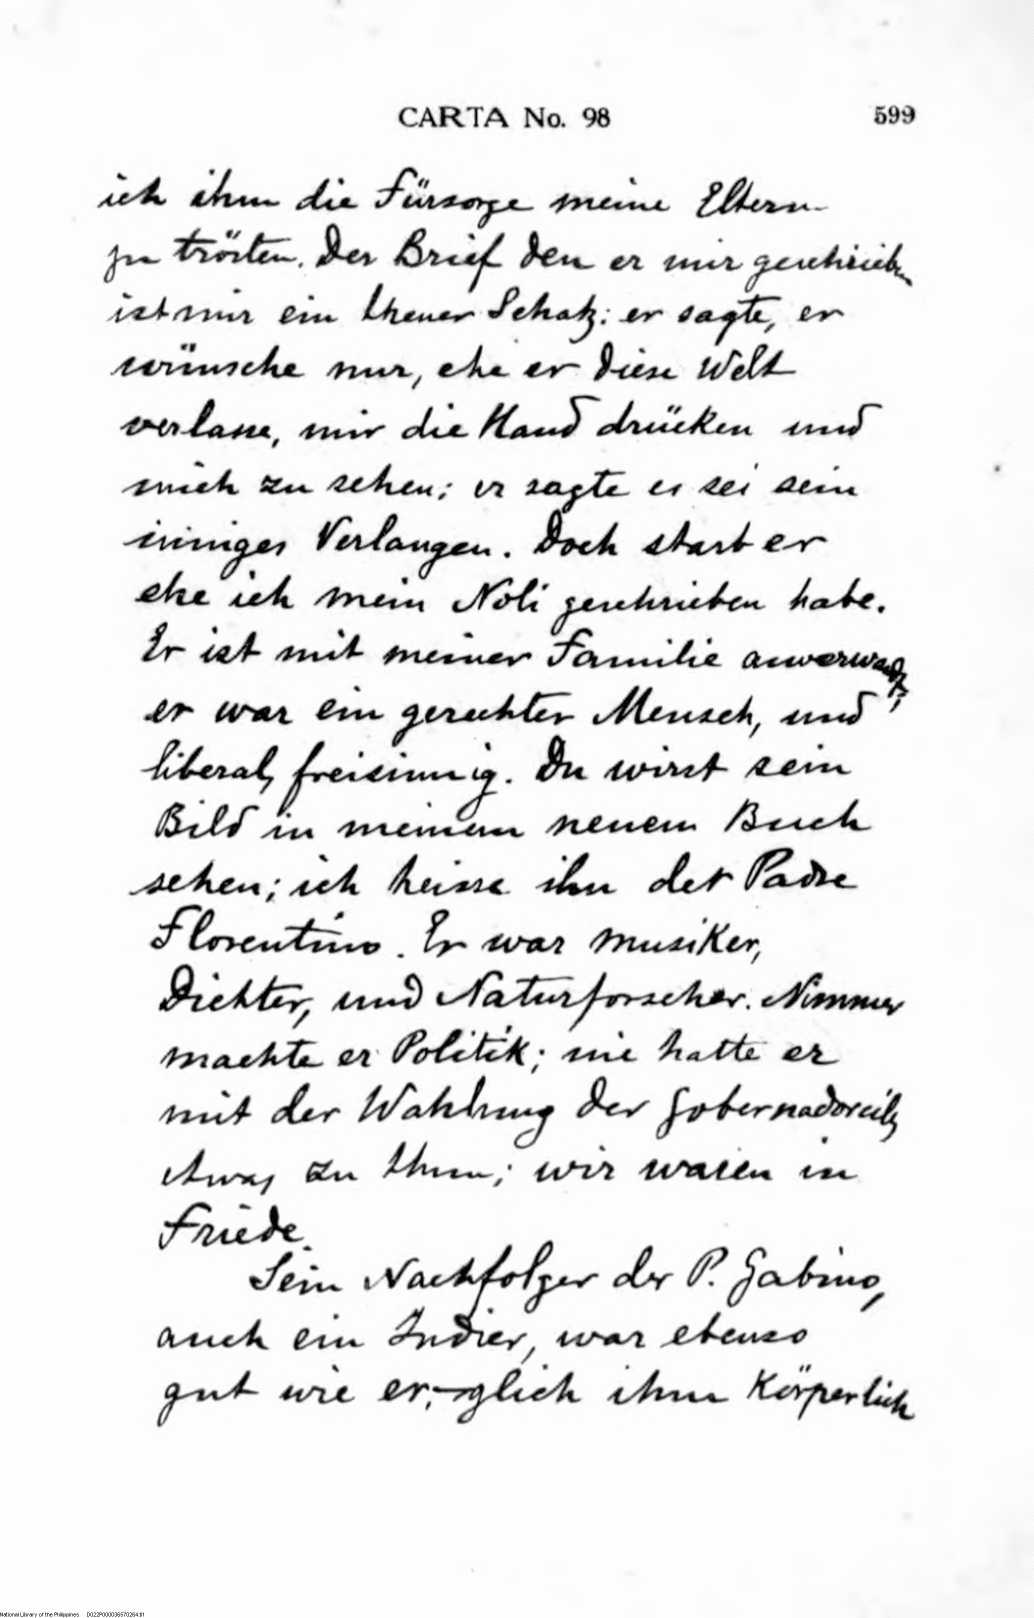 CARTA No. 98 599
ich ihm die Fürsorge meine Eltern
zu trösten. Der Brief den er mir geschrieben
ist mir ein theuer Schatz: er sagte, er
wünsche nur, ehe er diese Welt
verlasse, mir die Hand drücken und
mich zu sehen; er sagte es sei sein
inniges Verlangen. Doch starb er
ehe ich mein Noli geschrieben habe.
Er ist mit meiner Familie anverwandt;
er war ein gerechter Mensch, und
liberal, freisinnig. Du wirst sein
Bild in meinem neuem Buch
sehen; ich heisse ihn der Padre
Florentino. Er war Musiker,
Dichter, und Naturforscher. Nimmer
machte er Politik; nie hatte er
mit der Wahlung der
etwas zu thun; wir waren in
Friede.
Sein Nachfolger der P. Gabino,
auch ein Indier, war ebenso
gut wie er; glich ihm Körperlich
National Library of the Philippines D022P000036570264.tif